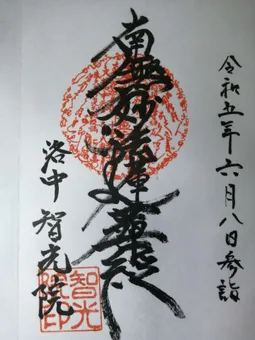 令和五年六月八日参詣
南無妙法蓮華経
洛中 智光院
智光院印